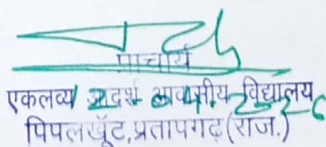 प्राचार्य
एकलव्य आदर्श आवासीय विद्यालय
पिपलखूँट,प्रतापगढ़(राज.)